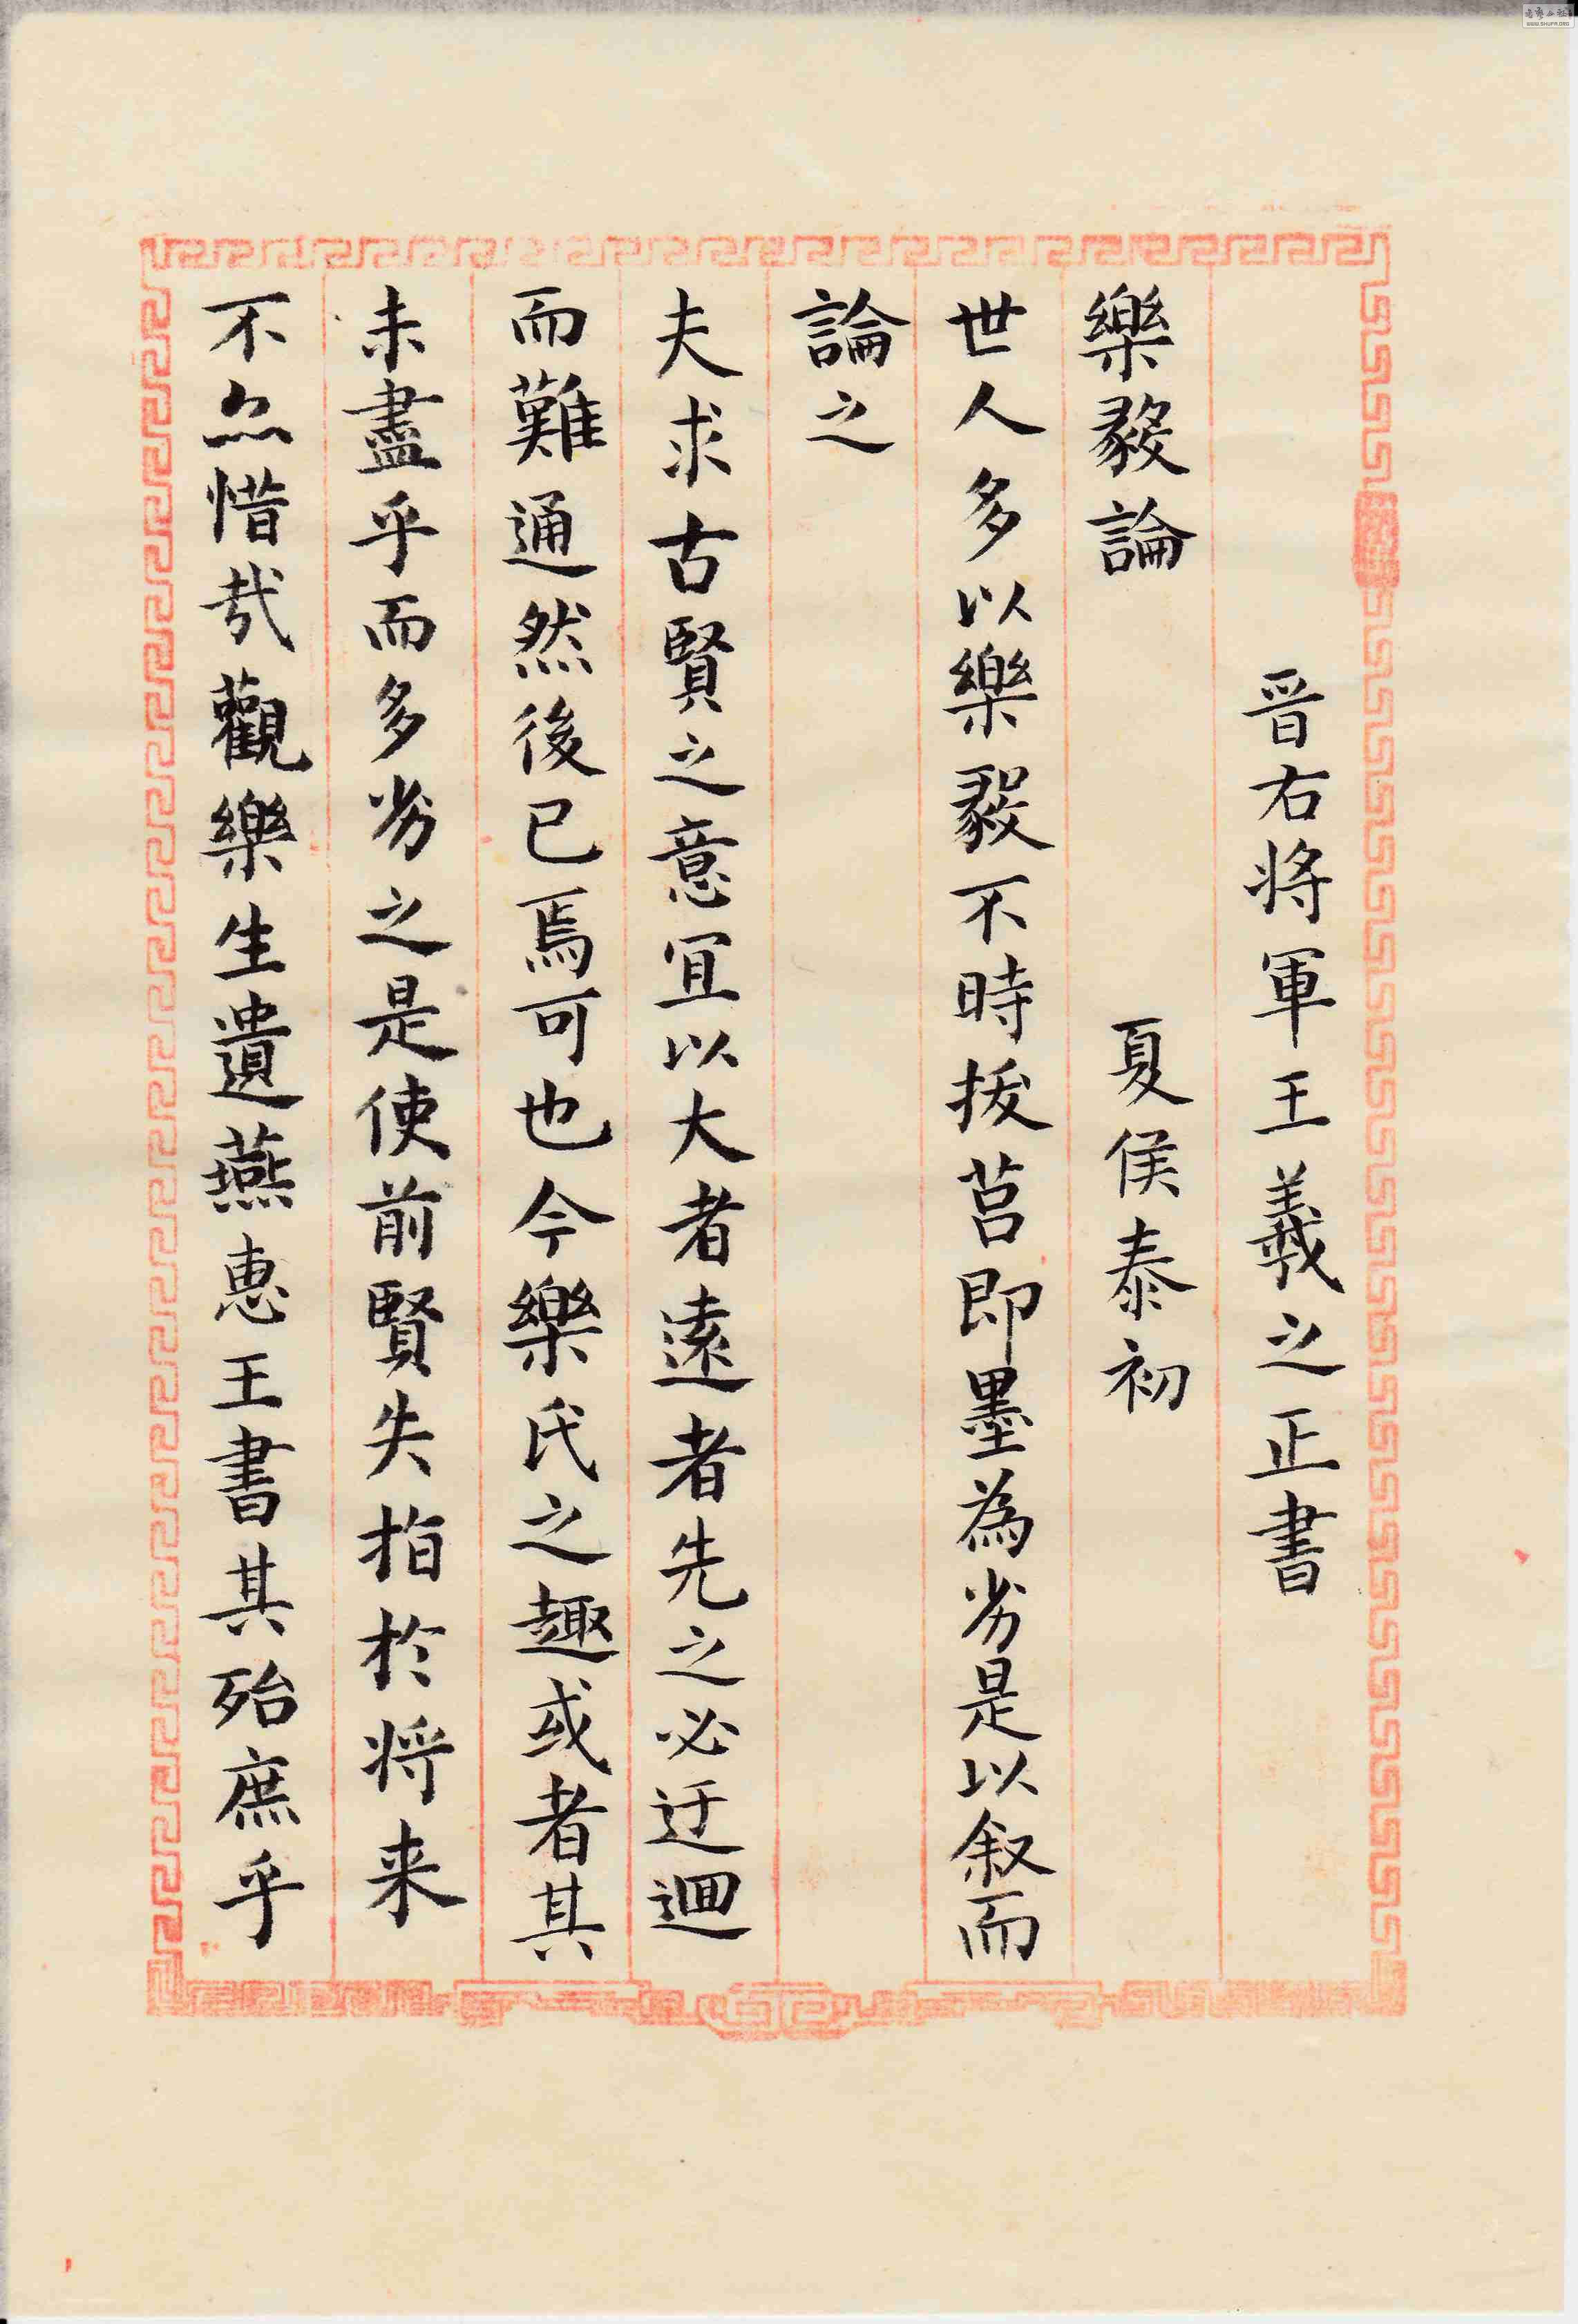 晋右将軍王羲之正書
樂毅論 夏侯泰初
世人多以樂毅不時拔莒即墨為劣是以叙而
論之
夫求古賢之意宜以大者遠者先之必迂迴
而難通然後已焉可也今樂氏之趣或者其
未盡乎而多劣之是使前賢失指於将来
不亦惜哉觀樂生遺燕惠王書其殆庶乎
WWW.SHUFA.ORG